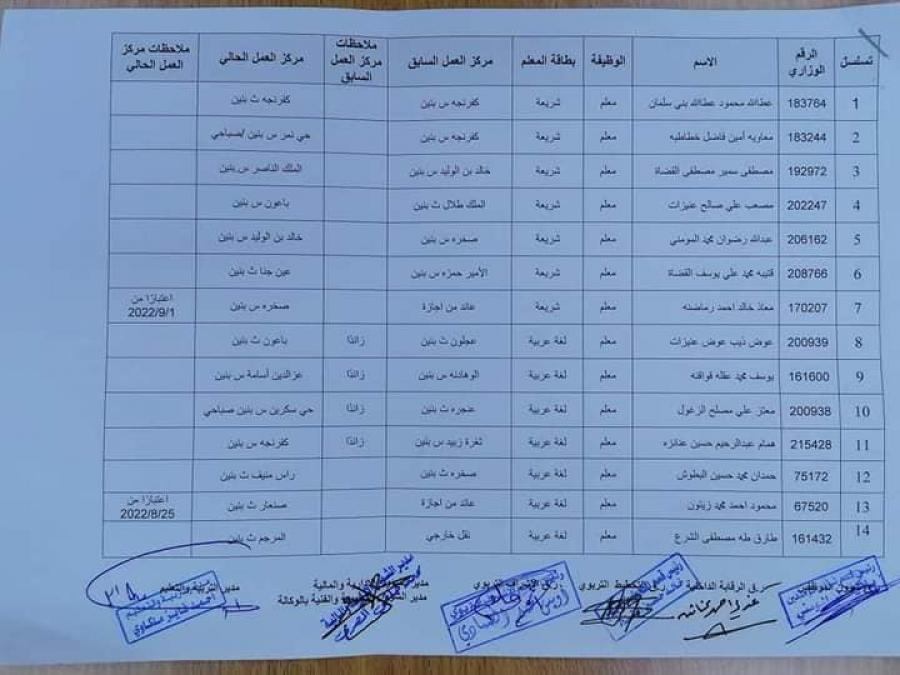 تسلسل | الرقم الوزاري | الاسم | الوظيفة | بطاقة المعلم | مركز العمل السابق | ملاحظات مركز العمل السابق | مركز العمل الحالي | ملاحظات مركز العمل الحالي
1 | 183764 | عطاالله محمود عطاالله بني سلمان | معلم | شريعة | كفرنجه س بنين | كفرنجه ث بنين
2 | 183244 | معاويه أمين فاضل خطاطبه | معلم | شريعة | كفرنجه س بنين | حي نمر س بنين /صباحي
3 | 192972 | مصطفى سمير مصطفى القضاة | معلم | شريعة | خالد بن الوليد س بنين | الملك الناصر س بنين
4 | 202247 | مصعب علي صالح عنيزات | معلم | شريعة | الملك طلال ث بنين | باعون س بنين
5 | 206162 | عبدالله رضوان محمد المومني | معلم | شريعة | صخره س بنين | خالد بن الوليد س بنين
6 | 208766 | قتيبه محمد علي يوسف القضاة | معلم | شريعة | الأمير حمزه س بنين | عين جنا ث بنين
7 | 170207 | معاذ خالد احمد رماضنه | معلم | شريعة | عائد من اجازة | صخره س بنين | اعتبارًا من 2022/9/1
8 | 200939 | عوض ذيب عوض عنيزات | معلم | لغة عربية | عجلون ث بنين | زائدًا | باعون ث بنين
9 | 161600 | يوسف محمد عقله قواقنه | معلم | لغة عربية | الوهادنه س بنين | زائدًا | عزالدين أسامة س بنين
10 | 200938 | معتز علي مصلح الزغول | معلم | لغة عربية | عنجره ث بنين | زائدًا | حي سكرين س بنين صباحي
11 | 215428 | همام عبدالرحيم حسين عنانزه | معلم | لغة عربية | ثغرة زبيد س بنين | زائدًا | كفرنجه س بنين
12 | 75172 | حمدان محمد حسين البطوش | معلم | لغة عربية | صخره ث بنين | راس منيف ث بنين
13 | 67520 | محمود احمد محمد زيتون | معلم | لغة عربية | عائد من اجازة | صنعار ث بنين | اعتبارًا من 2022/8/25
14 | 161432 | طارق طه مصطفى الشرع | معلم | لغة عربية | نقل خارجي | المرجم ث بنين
ر.ق الرقابة الداخلية
التخطيط التربوي
ر.ق الاشراف التربوي
مدير الشؤون الادارية والمالية
والفنية بالوكالة
مدير التربية والتعليم